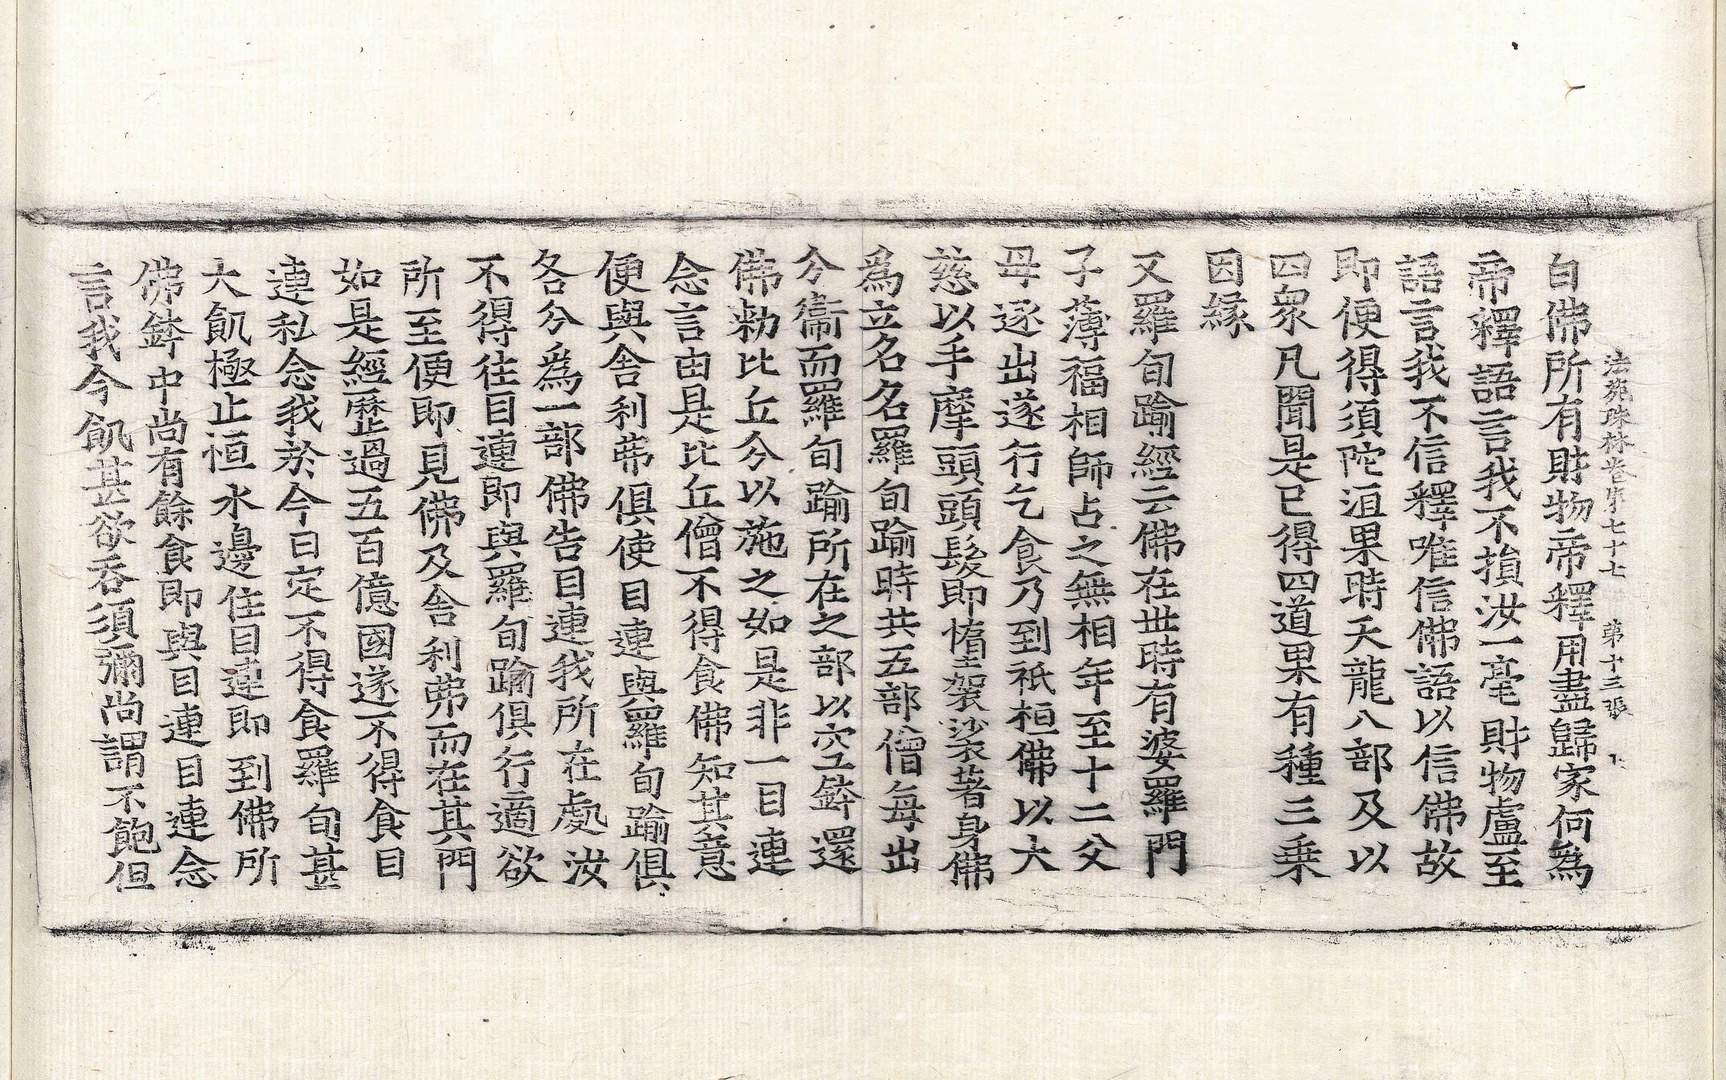 法苑珠林卷第七十七 第十三張
白佛所有財物帝釋用盡歸家何為
帝釋語言我不損汝一毫財物盧至
語言我不信釋唯信佛語以信佛故
即便得須陀洹果時天龍八部及以
四衆凡聞是已得四道果有種三乗
因緣
又羅旬踰經云佛在世時有婆羅門
子薄福相師占之無相年至十二父
母逐出遂行乞食乃到祇桓佛以大
慈以手摩頭頭髮即惰袈裟著身佛
爲立名名羅旬踰時共五部僧每出
分衛而羅旬踰所在之部以空鉢還
佛勑比丘分以施之如是非一目連
念言由是比丘僧不得食佛知其意
便與舍利弗俱使目連與羅旬踰俱
各分爲一部佛告目連我所在處汝
不得往目連即與羅旬踰俱行適欲
所至便即見佛及舍利弗而在其門
如是經歷過五百億國遂不得食目
連私念我於今日定不得食羅旬甚
大飢極止恒水邊住目連即到佛所
佛鉢中尚有餘食即與目連目連念
言我今飢甚欲吞須彌尚謂不飽但